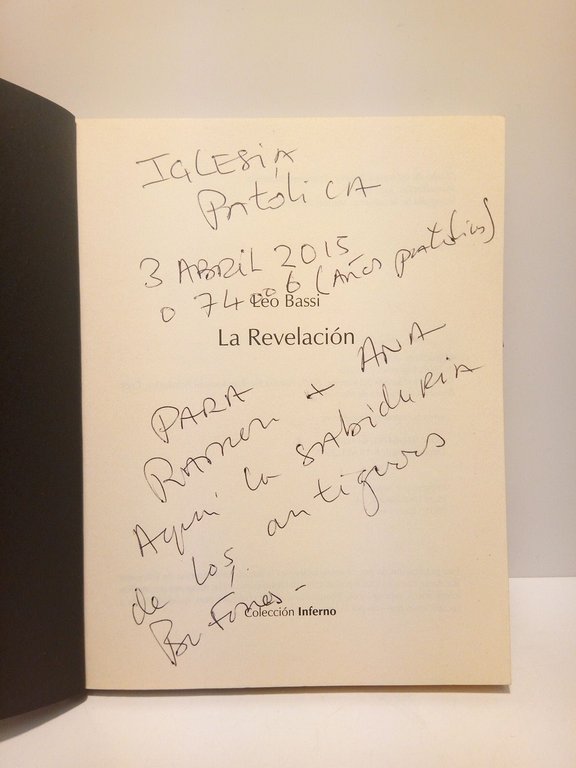 IGLESIA
PATÓLICA
3 ABRIL 2015
o 74006 (AÑOS patólicos)
Leo Bassi
La Revelación
PARA
RAMON + ANA
Aqui la sabiduria
de los antiguos
Bufones -
Colección Inferno